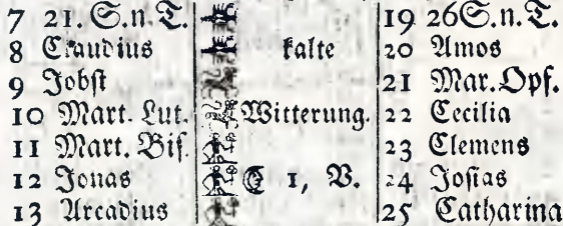 7 21. S. n. T. 19 26 S. n. T.
8 Claudius kalte 20 Amos
9 Jobst 21 Mar. Opf.
10 Mart. Lut. Witterung. 22 Cecilia
11 Mart. Bis. 23 Clemens
12 Jonas ☾ 1, V. 24 Josias
13 Arcadius 25 Catharina